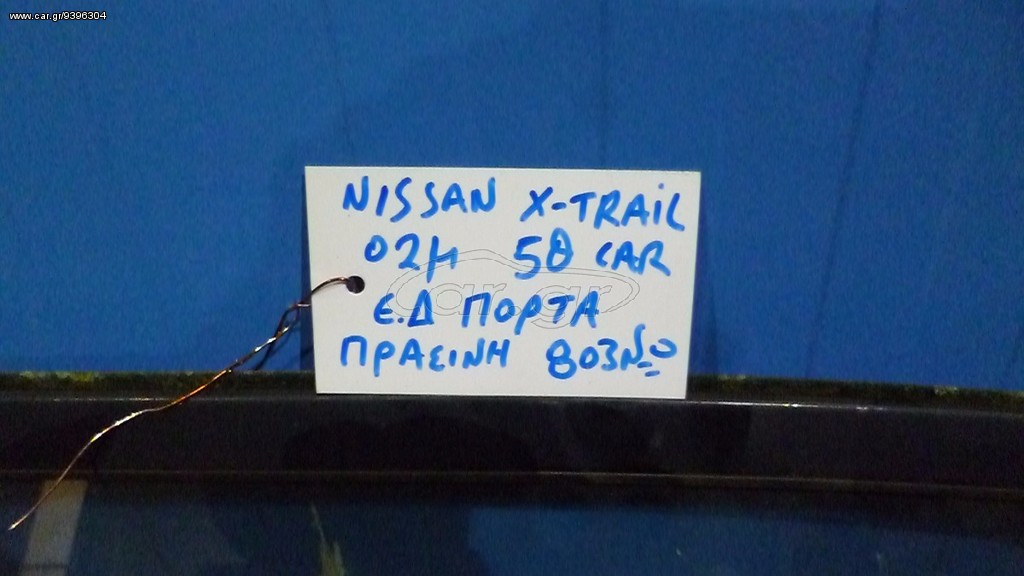 www.car.gr/9396304
NISSAN X-TRAIL
02μ 5Θ CAR
car.gr
Ε.Δ ΠΟΡΤΑ
ΠΡΑΣΙΝΗ 803Νο